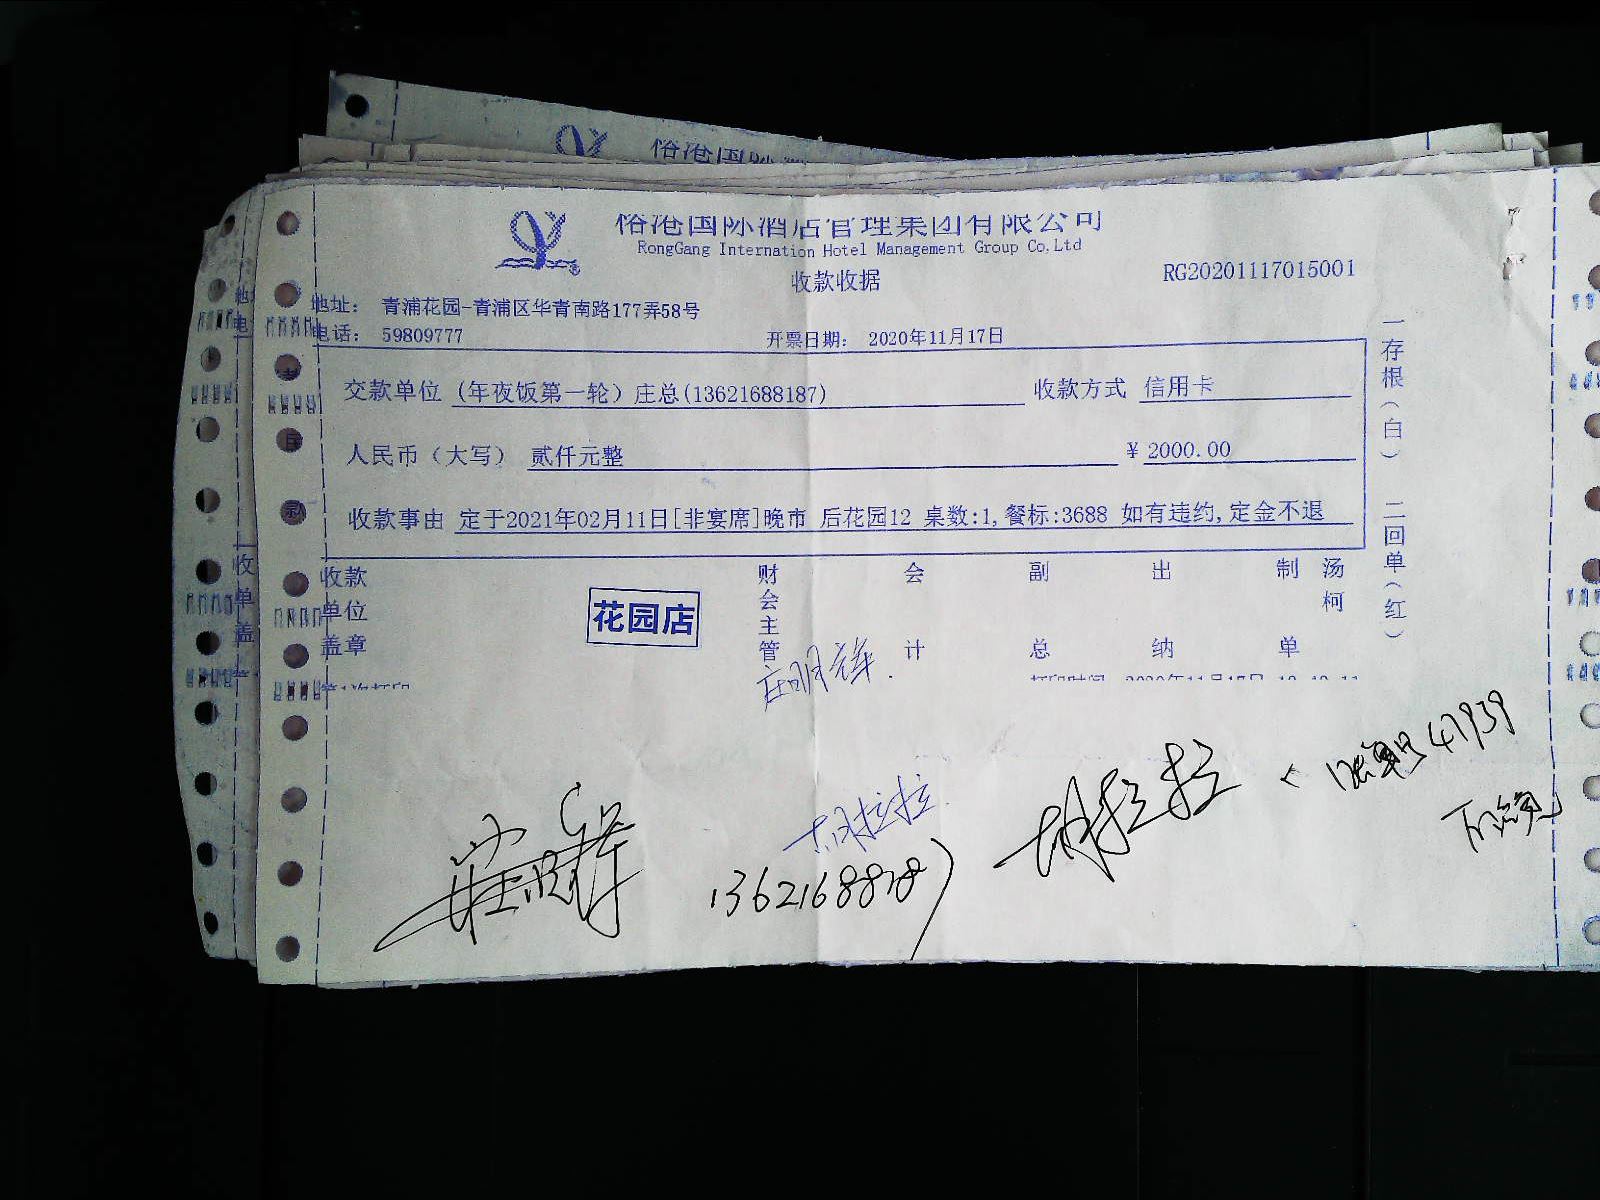 俗港国际酒店管理集团有限公司
RongGang International Hotel Management Group Co,Ltd
收款收据
RG20201117015001
地址： 青浦花园-青浦区华青南路177弄58号
电话： 59809777
开票日期： 2020年11月17日
交款单位 (年夜饭第一轮) 庄总(13621688187) 收款方式 信用卡
人民币（大写） 贰仟元整 ¥ 2000.00
收款事由 定于2021年02月11日[非宴席]晚市 后花园12 桌数:1,餐标:3688 如有违约,定金不退
收款单位盖章
花园店
财会主管
会计
副总
出纳
制单
汤柯
一存根（白） 二回单（红）
庄明
胡拉拉
胡拉拉
账单号47939